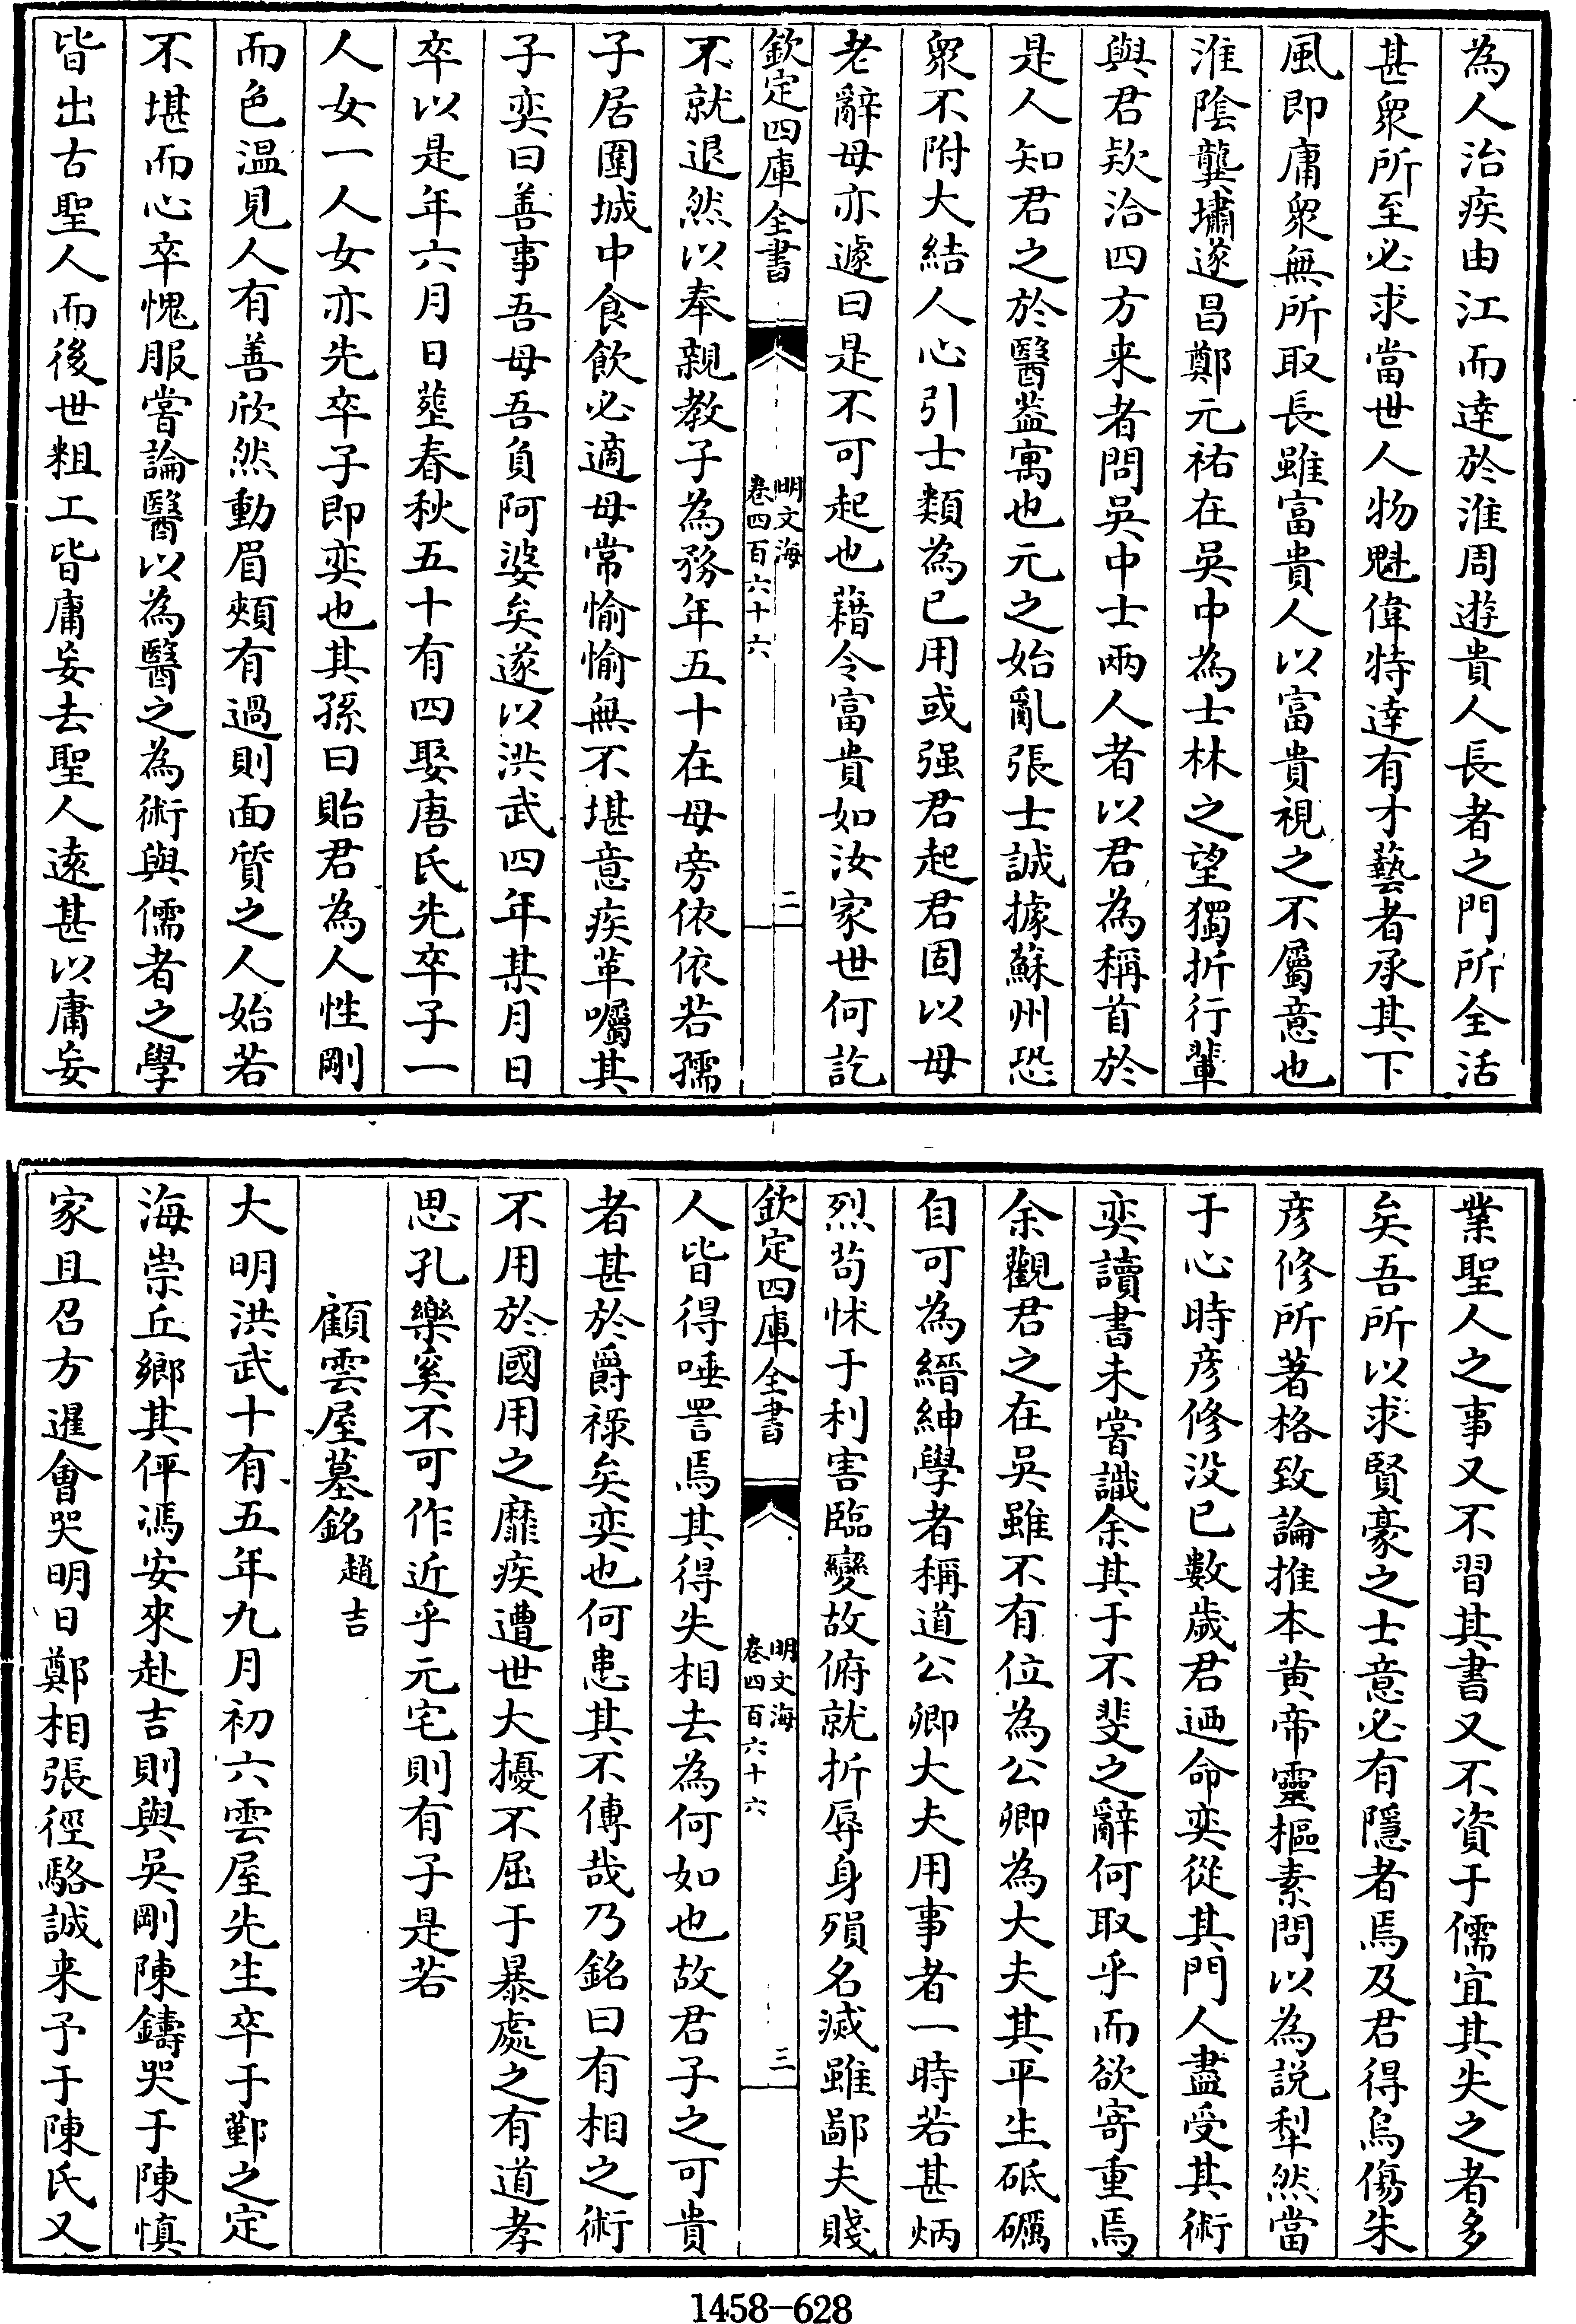 為人治疾由江而達於淮周遊貴人長者之門所全活
甚衆所至必求當世人物魁偉特達有才藝者承其下
風即庸衆無所取長雖富貴人以富貴視之不屬意也
淮陰龔璛遂昌鄭元祐在吳中為士林之望獨折行輩
與君欵洽四方来者問吳中士兩人者以君為稱首於
是人知君之於醫葢寓也元之始亂張士誠據蘇州恐
衆不附大結人心引士類為已用或强君起君固以母
老辭母亦遽曰是不可起也藉令富貴如汝家世何訖
欽定四庫全書
明文海
卷四百六十六
二
不就退然以奉親教子為務年五十在母旁依依若孺
子居圍城中食飲必適母常愉愉無不堪意疾革囑其
子奕曰善事吾母吾負阿婆矣遂以洪武四年某月日
卒以是年六月日塟春秋五十有四娶唐氏先卒子一
人女一人女亦先卒子即奕也其孫曰貽君為人性剛
而色溫見人有善欣然動眉頰有過則面質之人始若
不堪而心卒愧服嘗論醫以為醫之為術與儒者之學
皆出古聖人而後世粗工皆庸妄去聖人逺甚以庸妄
業聖人之事又不習其書又不資于儒宜其失之者多
矣吾所以求賢豪之士意必有隱者焉及君得烏傷朱
彦修所著格致論推本黄帝靈樞素問以為説犁然當
于心時彦修没已數歲君迺命奕從其門人盡受其術
奕讀書未嘗識余其于不斐之辭何取乎而欲寄重焉
余觀君之在吳雖不有位為公卿為大夫其平生砥礪
自可為縉紳學者稱道公卿大夫用事者一時若甚炳
烈茍怵于利害臨變故俯就折辱身殞名滅雖鄙夫賤
欽定四庫全書
明文海
卷四百六十六
三
人皆得唾詈焉其得失相去為何如也故君子之可貴
者甚於爵祿矣奕也何患其不傳哉乃銘曰有相之術
不用於國用之靡疾遭世大擾不屈于暴處之有道孝
思孔樂奚不可作近乎元宅則有子是若
顧雲屋墓銘 趙吉
大明洪武十有五年九月初六雲屋先生卒于鄞之定
海崇丘鄉其伻馮安來赴吉則與吳剛陳鑄哭于陳慎
家且召方暹會哭明日鄭相張徑駱誠来予于陳氏又
1458-628